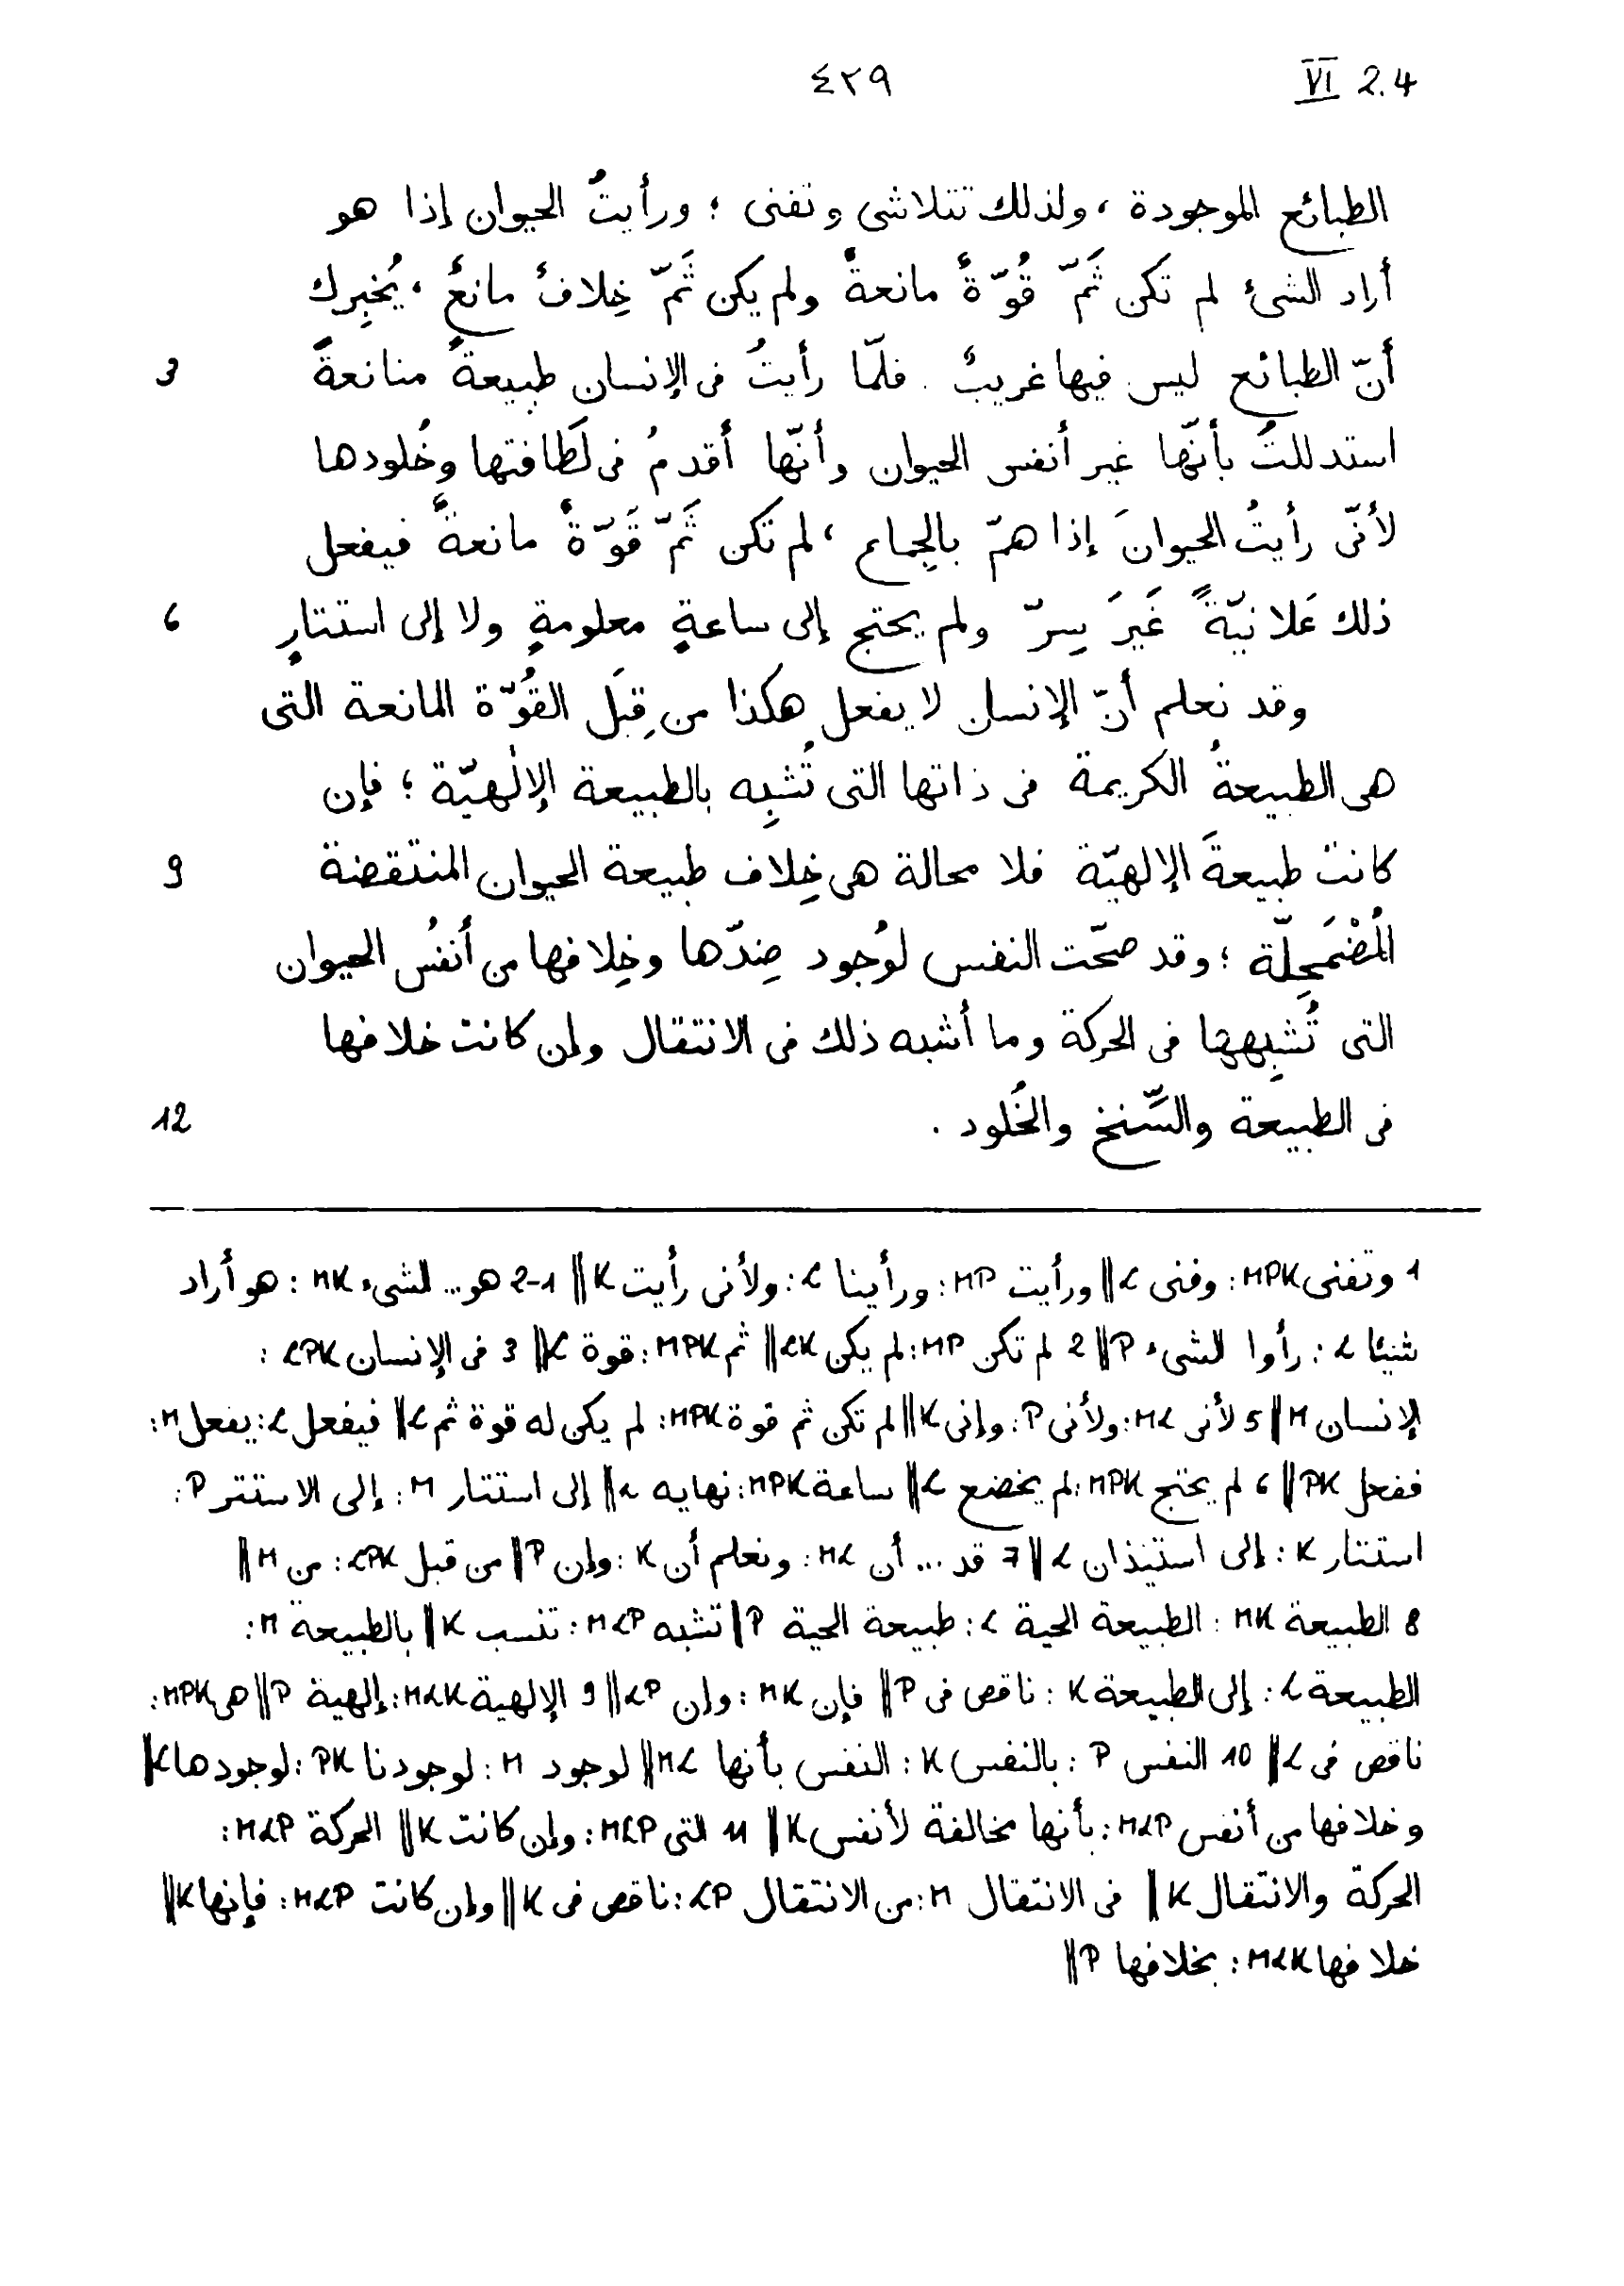 ٤٢٩ VI 2.4
الطبائع الموجودة، ولذلك تتلاشى وتفنى؛ ورأيتُ الحيوان إذا هو
أراد الشئ لم تكن ثَمّ قُوّةٌ مانعةٌ ولم يكن ثَمّ خِلافٌ مانعٌ، يُخبِرك
3 أنّ الطبائع ليس فيها غريبٌ. فلمّا رأيتُ فى الإنسان طبيعةً منانعةً
استدللتُ بأنّها غير أنفس الحيوان وأنّها أقدمُ فى لَطافتها وخُلودها
لأنّى رأيتُ الحيوانَ إذا همّ بالجِماع، لم تكن ثَمّ قَوّةٌ مانعةٌ فيفعل
6 ذلك عَلانيّةً غَيرَ سِرّ ولم يحتج إلى ساعةٍ معلومةٍ ولا إلى استتارٍ
وقد نعلم أنّ الإنسان لا يفعل هكذا من قِبَل القُوّة المانعة التى
هى الطبيعةُ الكريمة فى ذاتها التى تُشبِه بالطبيعة الإلٰهيّة؛ فإن
9 كانت طبيعةَ الإلهيّة فلا محالة هى خِلاف طبيعة الحيوان المنتقضة
المُضْمَحِلّة؛ وقد صحّت النفس لوُجود ضِدّها وخِلافها من أنفُس الحيوان
التى تُشبِهها فى الحركة وما أشبه ذلك فى الانتقال وإن كانت خلافها
12 فى الطبيعة والسِّنخ والخُلود.
1 وتفنى MPK: وفنى L ‖ ورأيت MP: ورأينا L: ولأنى رأيت K ‖ 1-2 هو... الشىء MK: هو أراد
شيئا L: رأوا الشىء P ‖ 2 لم تكن MP: لم يكن LK ‖ ثم MPK: قوة L ‖ 3 فى الإنسان LPK:
لإنسان M ‖ 5 لأنى ML: ولأنى P: وإنى K ‖ لم تكن ثم قوة MPK: لم يكن له قوة ثم L ‖ فيفعل L: يفعل M:
ففعل PK ‖ 6 لم يحتج MPK: لم يخضع L ‖ ساعة MPK: نهايه L ‖ إلى استتار M: إلى الاستتر P:
استتار K: إلى استيذان L ‖ 7 قد... أن ML: ونعلم أن K: وإن P ‖ من قبل LPK: من M ‖
8 الطبيعة MK: الطبيعة الحية L: طبيعة الحية P ‖ تشبه MLP: تنسب K ‖ بالطبيعة M:
الطبيعة L: إلى الطبيعة K: ناقص فى P ‖ فإن MK: وإن LP ‖ 9 الإلهية MLK: إلهية P ‖ هى MPK:
ناقص فى L ‖ 10 النفس P: بالنفس K: النفس بأنها ML ‖ لوجود M: لوجودنا PK: لوجودها L ‖
وخلافها من أنفس MLP: بأنها مخالفة لأنفس K ‖ 11 التى MLP: وإن كانت K ‖ الحركة MLP:
الحركة والانتقال K ‖ فى الانتقال M: من الانتقال LP: ناقص فى K ‖ وإن كانت MLP: فإنها K ‖
خلافها MLK: بخلافها P ‖